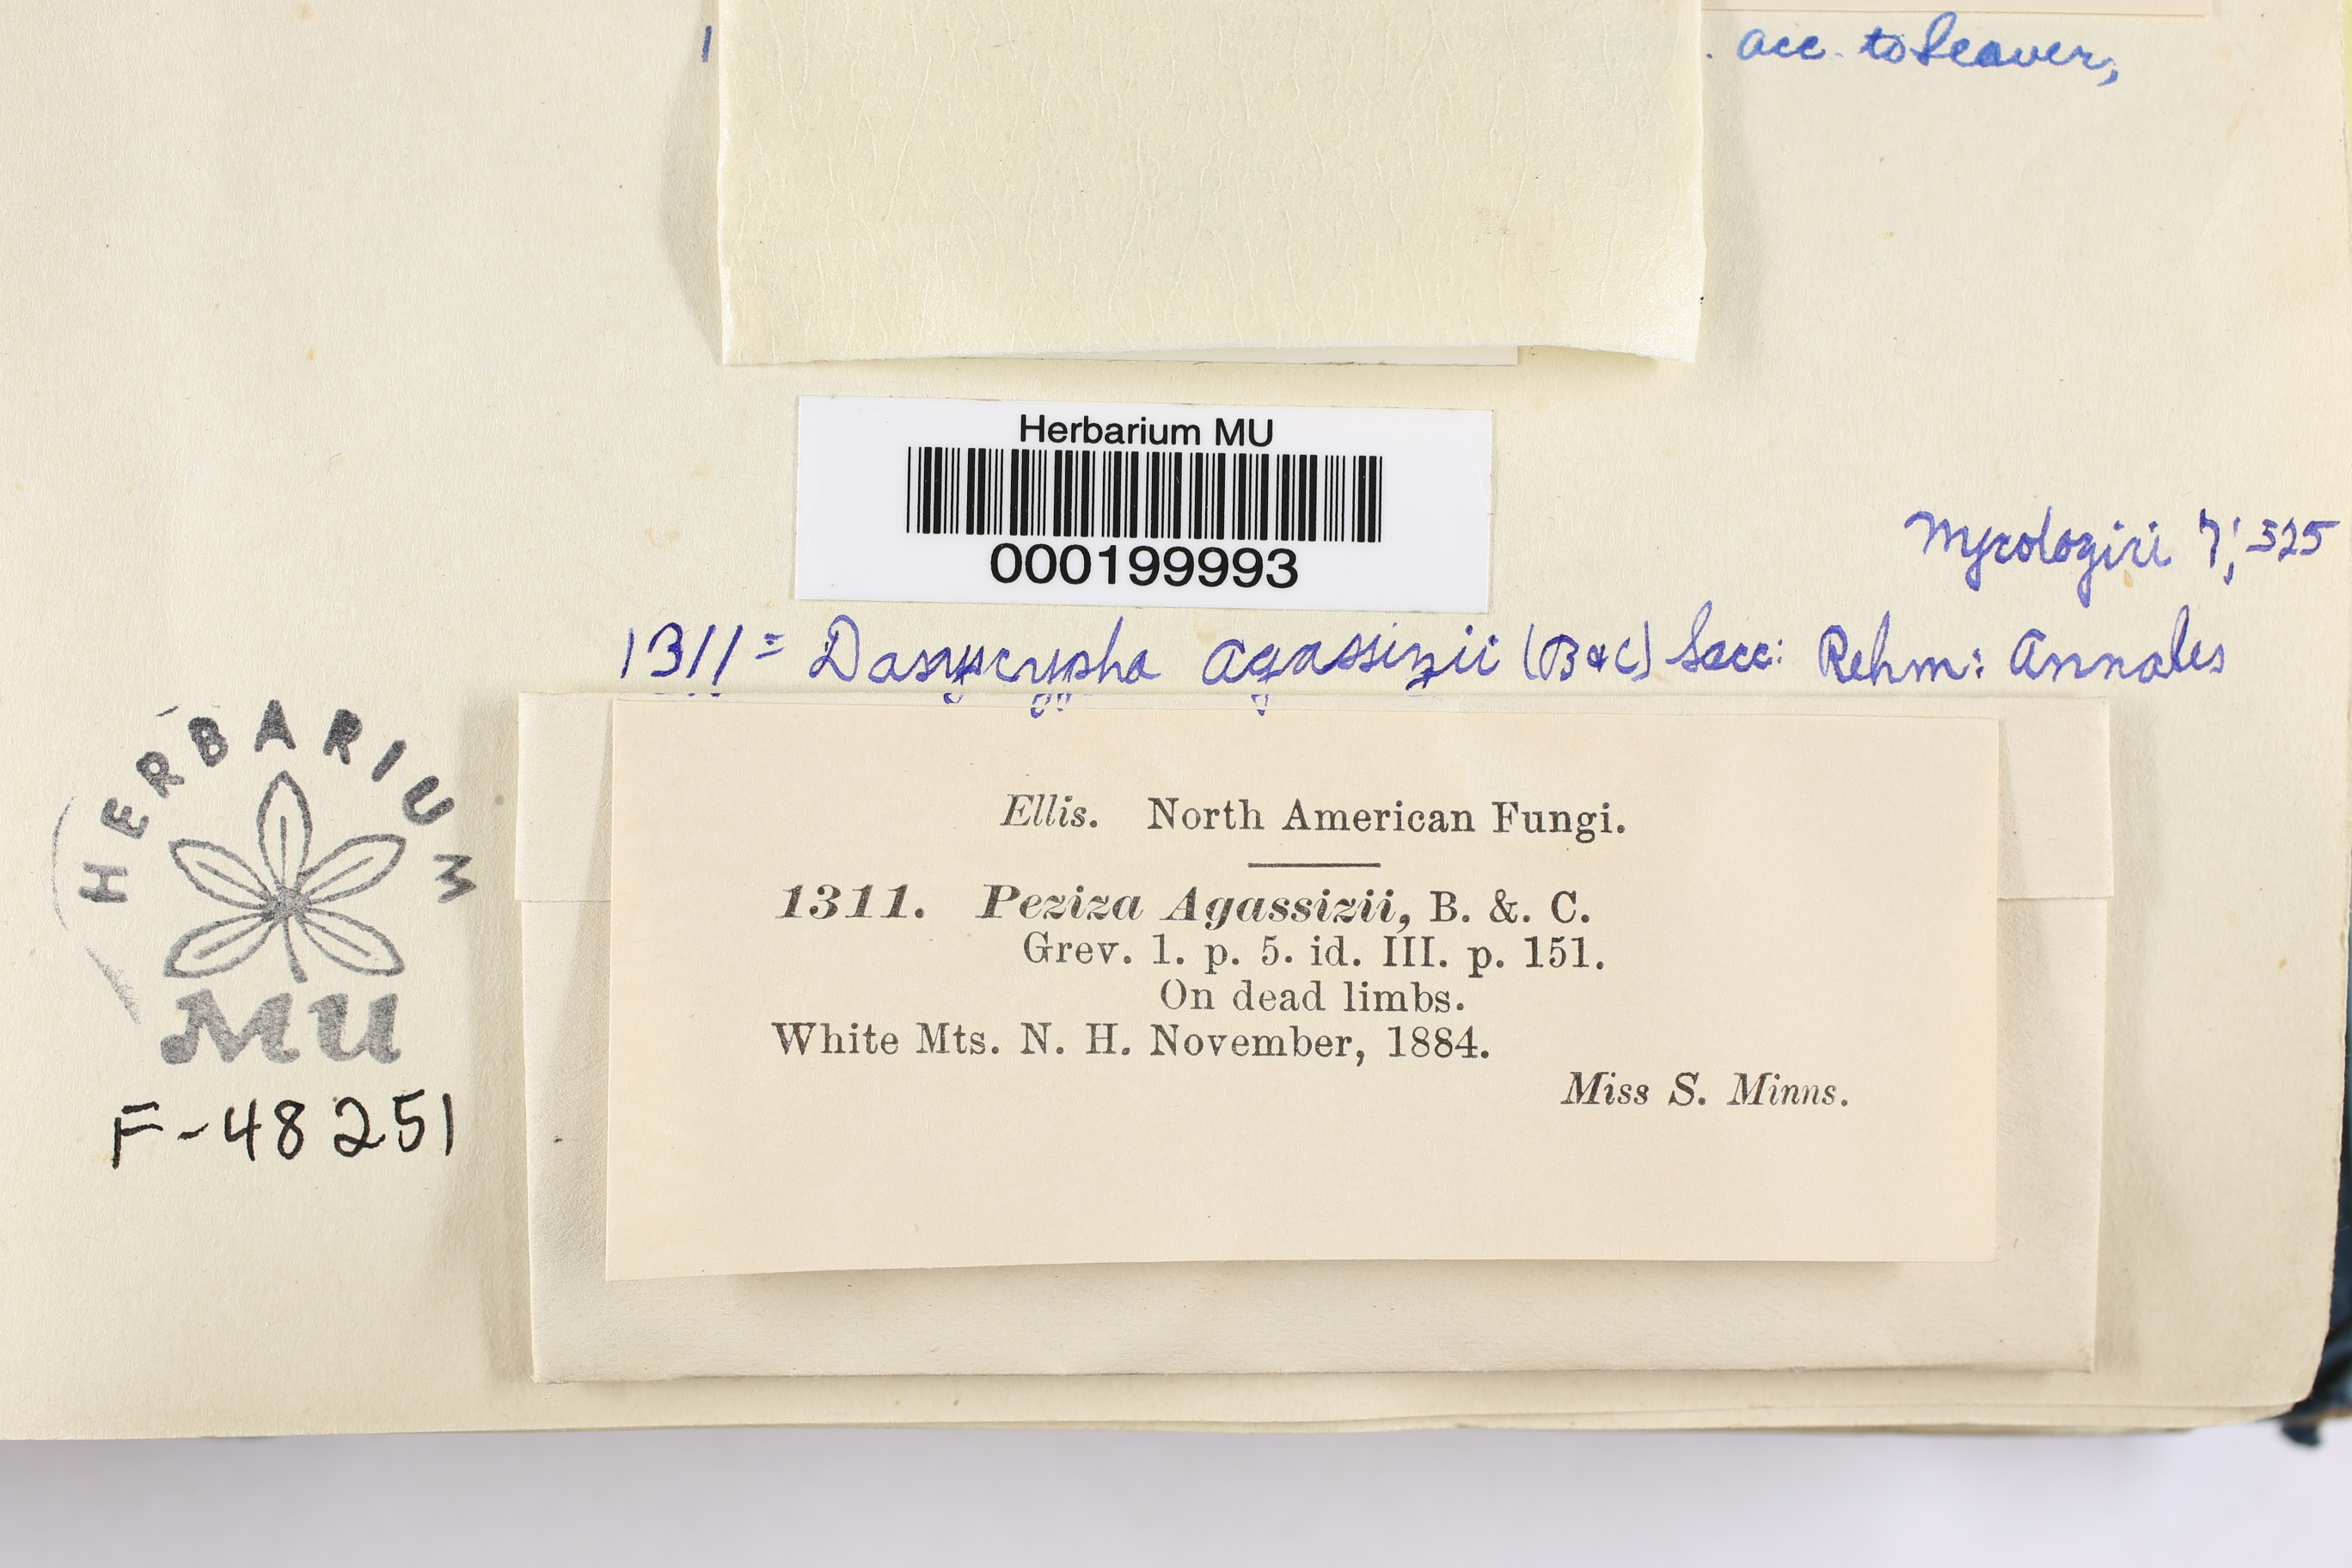 . acc. to Seaver,
Herbarium MU
000199993
Mycologici 7; 325
1311 = Dasyscypha Agassizii (B & C) Sacc: Rehm: Annales
HERBARIUM
MU
F-48251
Ellis. North American Fungi.
1311. Peziza Agassizii, B. &. C.
Grev. 1. p. 5. id. III. p. 151.
On dead limbs.
White Mts. N. H. November, 1884.
Miss S. Minns.